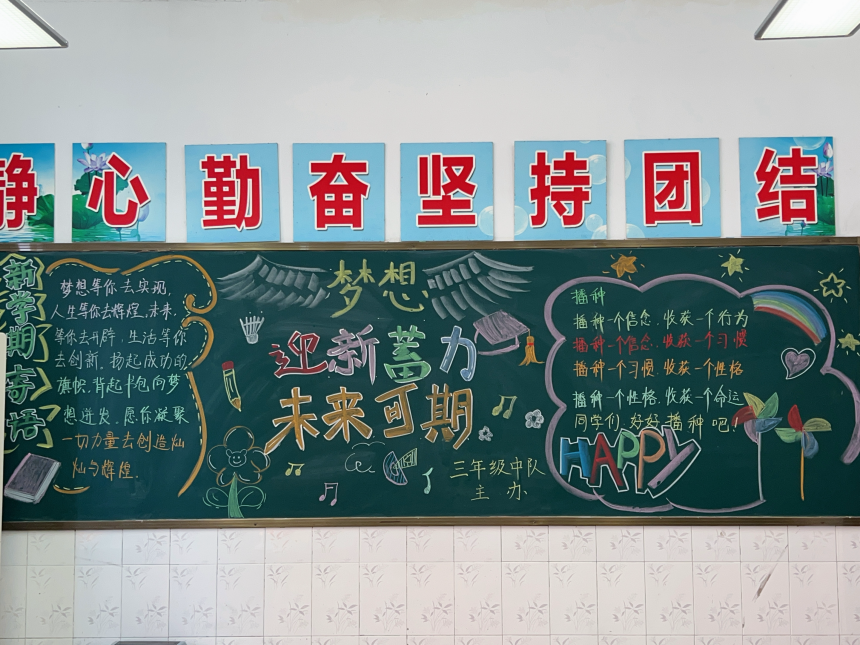 静心勤奋坚持团结
新学期寄语
梦想等你去实现,
人生等你去辉煌,未来,
等你去开辟,生活等你
去创新。扬起成功的
旗帜,背起书包,向梦
想进发,愿你凝聚
一切力量去创造灿
灿与辉煌.
梦想
迎新蓄力
未来可期
三年级中队
主办
播种
播种一个信念,收获一个行为
播种一个信念,收获一个习惯
播种一个习惯,收获一个性格
播种一个性格,收获一个命运
同学们,好好播种吧!
HAPPY